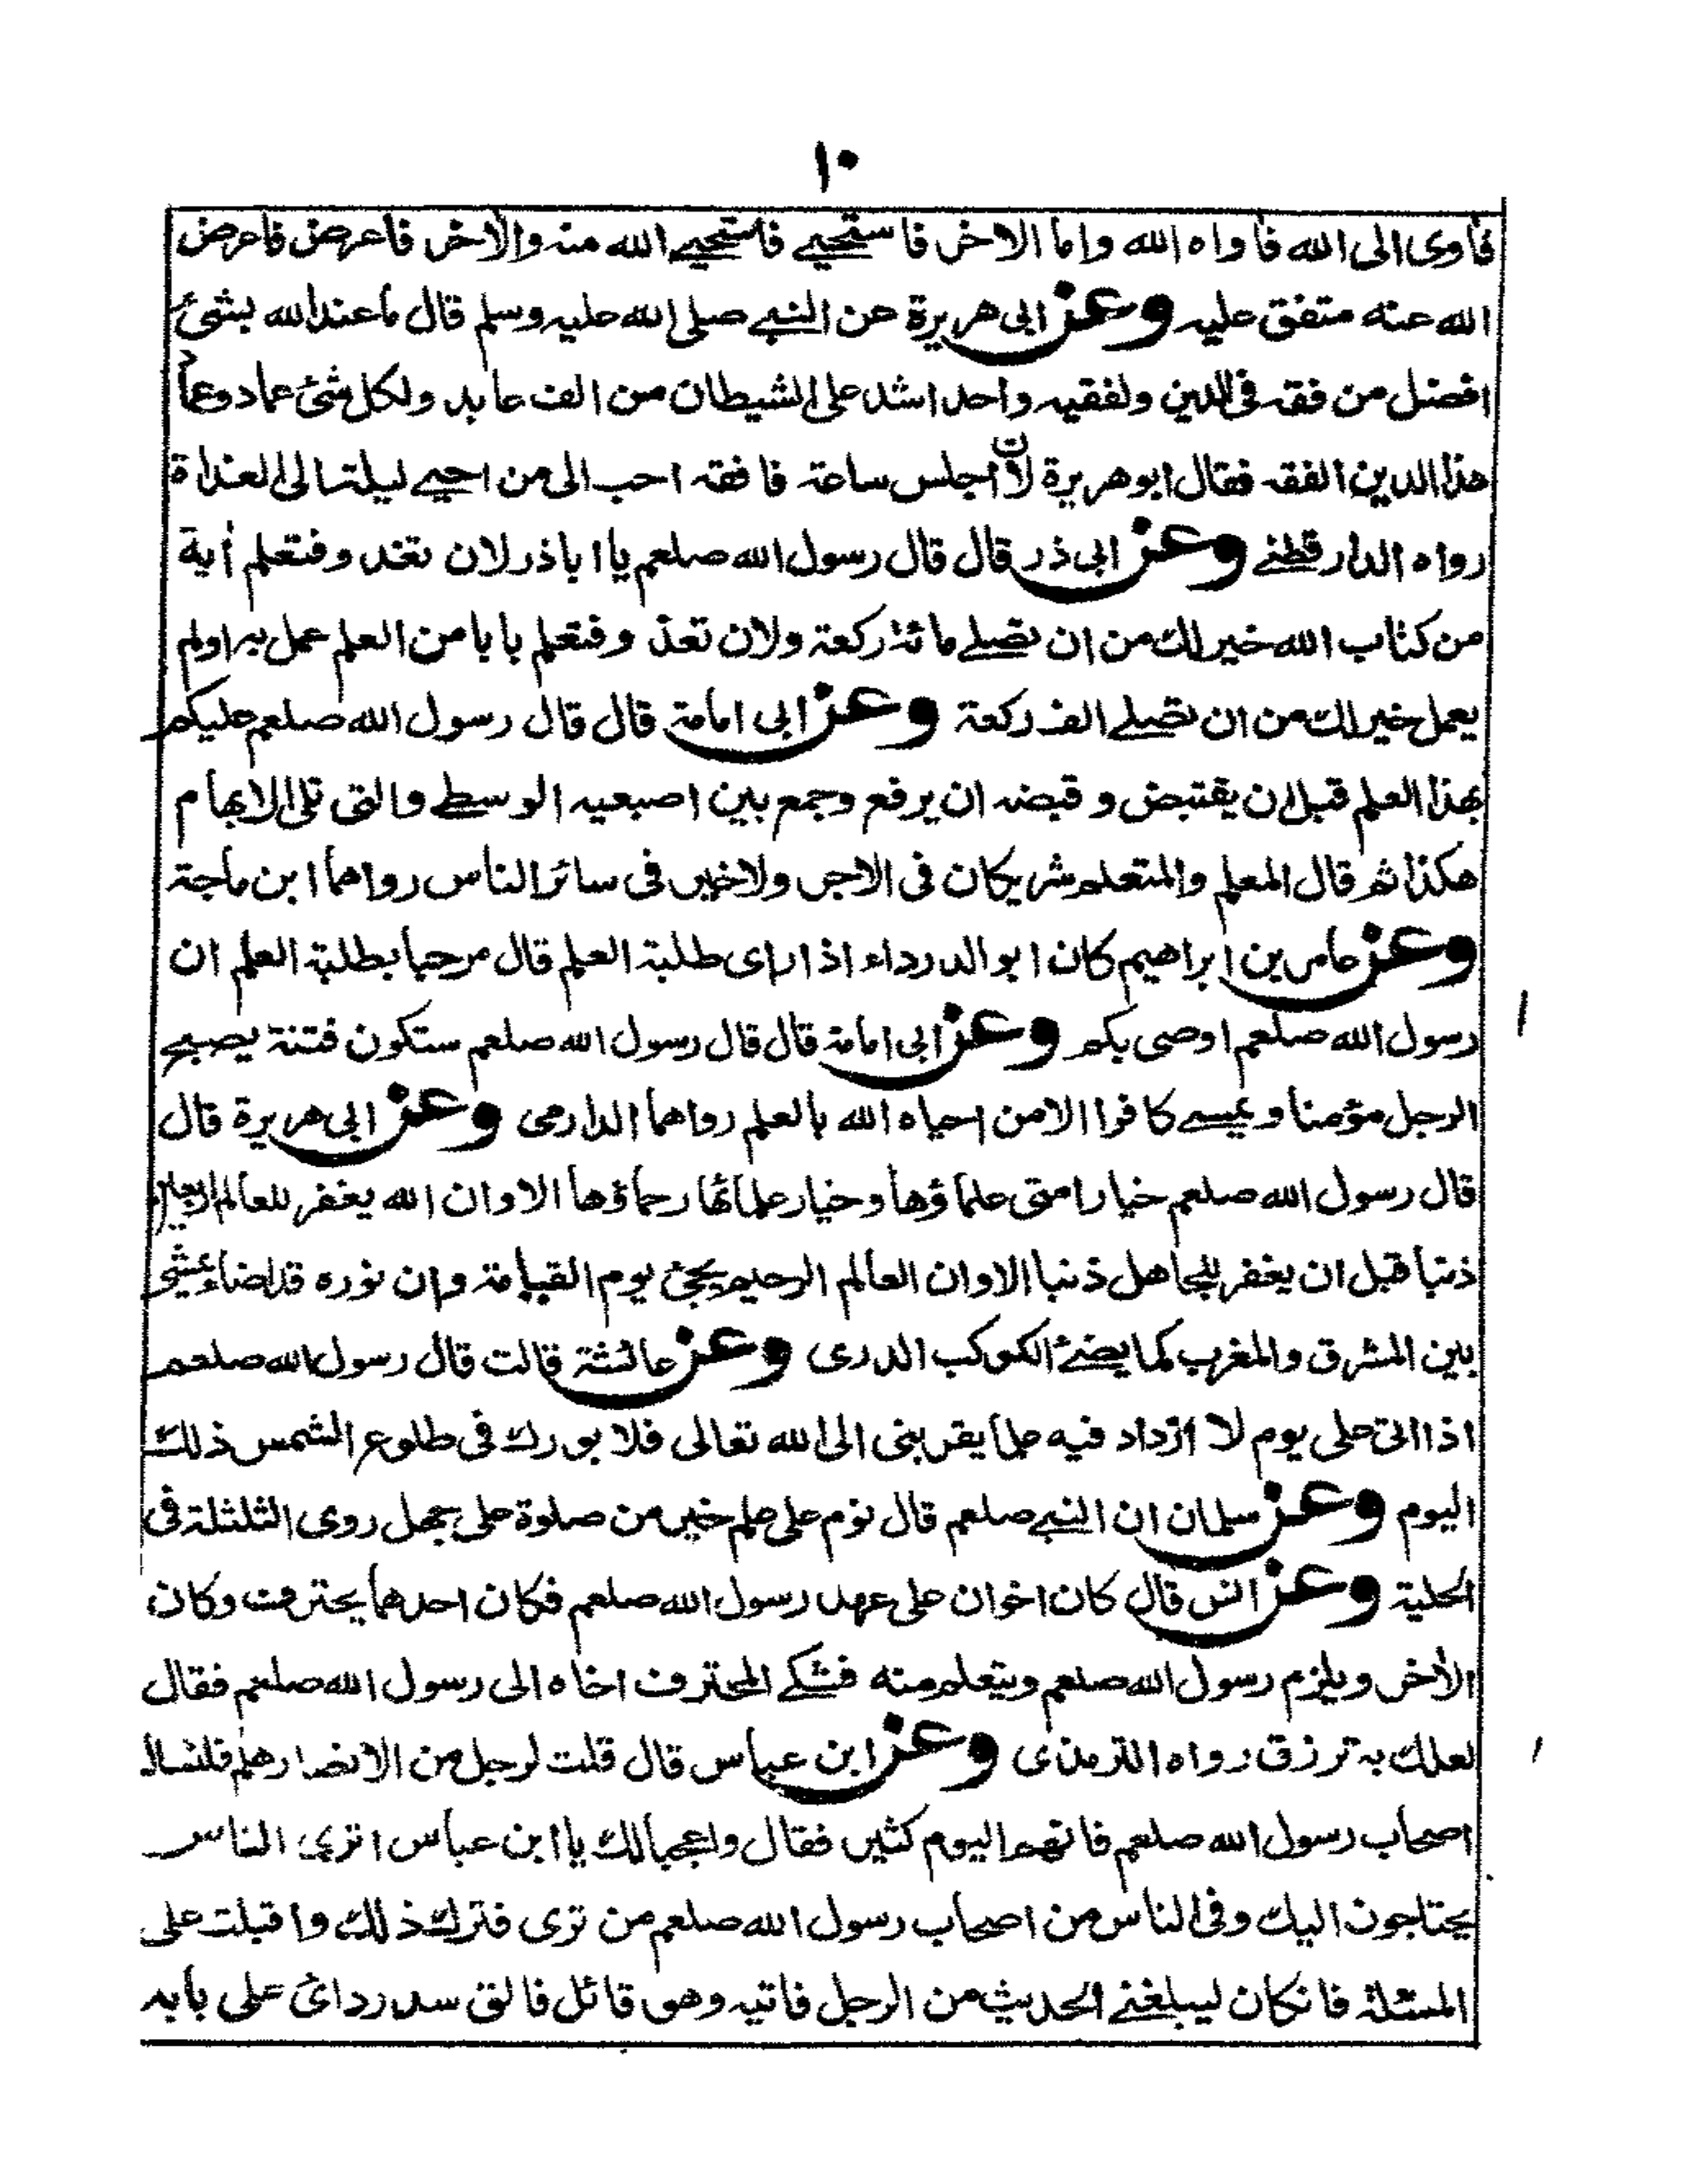 ١٠
فأوى الى الله فأواه الله واما الاخر فاستحيى فاستحيى الله منه والاخر فاعرض فاعرض
الله عنه متفق عليه وعن ابى هريرة عن النبى صلى الله عليه وسلم قال ما عند الله بشئ
افضل من فقه فى الدين ولفقيه واحد اشد على الشيطان من الف عابد ولكل شئ عماد وعما
هذا الدين الفقه فقال ابوهريرة لان اجلس ساعة فافقه احب الى من احيى ليلة الى الغداة
رواه الدارقطنى وعن ابى ذر قال قال رسول الله صلعم يا اباذر لان تغدو فتعلم أية
من كتاب الله خير لك من ان تصلى مائة ركعة ولان تغذ وفتعلم بابا من العلم عمل به اولم
يعمل خير لك من ان تصلى الف ركعة وعن ابى امامة قال قال رسول الله صلعم عليكم
بهذا العلم قبل ان يقتبض وقبضه ان يرفع وجمع بين اصبعيه الوسطى والتى تلى الابهام
هكذا ثم قال المعلم والمتعلم شريكان فى الاجر ولاخير فى سائر الناس رواهما ابن ماجة
وعن عامر بن ابراهيم كان ابو الدرداء اذا راى طلبة العلم قال مرحبا بطلبة العلم ان
رسول الله صلعم اوصى بكم وعن ابى امامة قال قال رسول الله صلعم ستكون فتنة يصبح
الرجل مؤمنا ويمسى كافرا الا من احياه الله بالعلم رواهما الدارمى وعن ابى هريرة قال
قال رسول الله صلعم خيار امتى علماؤها وخيار علمائها رحماؤها الا وان الله يغفر للعالم اربعين
ذنبا قبل ان يغفر للجاهل ذنبا الا وان العالم الرحيم يجئ يوم القيامة وان نوره قد اضاء يمشى
بين المشرق والمغرب كما يضئ الكوكب الدرى وعن عائشة قالت قال رسول الله صلعم
اذا اتى على يوم لا ازداد فيه علما يقربنى الى الله تعالى فلا بورك فى طلوع الشمس ذلك
اليوم وعن سلمان ان النبى صلعم قال نوم على علم خير من صلوة على جهل روى الثلثلة فى
الحلية وعن انس قال كان اخوان على عهد رسول الله صلعم فكان احدهما يحترف وكان
الأخر ويلزم رسول الله صلعم ويتعلم منه فشكى المحترف اخاه الى رسول الله صلعم فقال
لعلك به ترزق رواه الترمذى وعن ابن عباس قال قلت لرجل من الانصار هلم فلنسال
اصحاب رسول الله صلعم فانهم اليوم كثير فقال واعجبا لك يا ابن عباس اترى الناس
يحتاجون اليك وفى الناس من اصحاب رسول الله صلعم من ترى فترك ذلك واقبلت على
المسئلة فانكان ليبلغنى الحديث من الرجل فاتيه وهو قائل فالق سدردائ على بابه